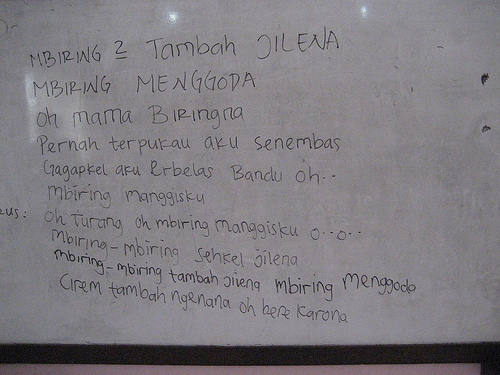 MBIRING 2 Tambah JILENA
MBIRING MENGGODA
oh mama BIRINGNA
Pernah terpukau aku senembas
Gagapkel aku Erbelas Bandu oh..
mbiring manggisku
eus: oh Turang oh mbiring manggisku o..o..
mbiring-mbiring sehkel jilena
mbiring-mbiring tambah jilena mbiring menggoda
Cirem tambah ngenana oh bere karona